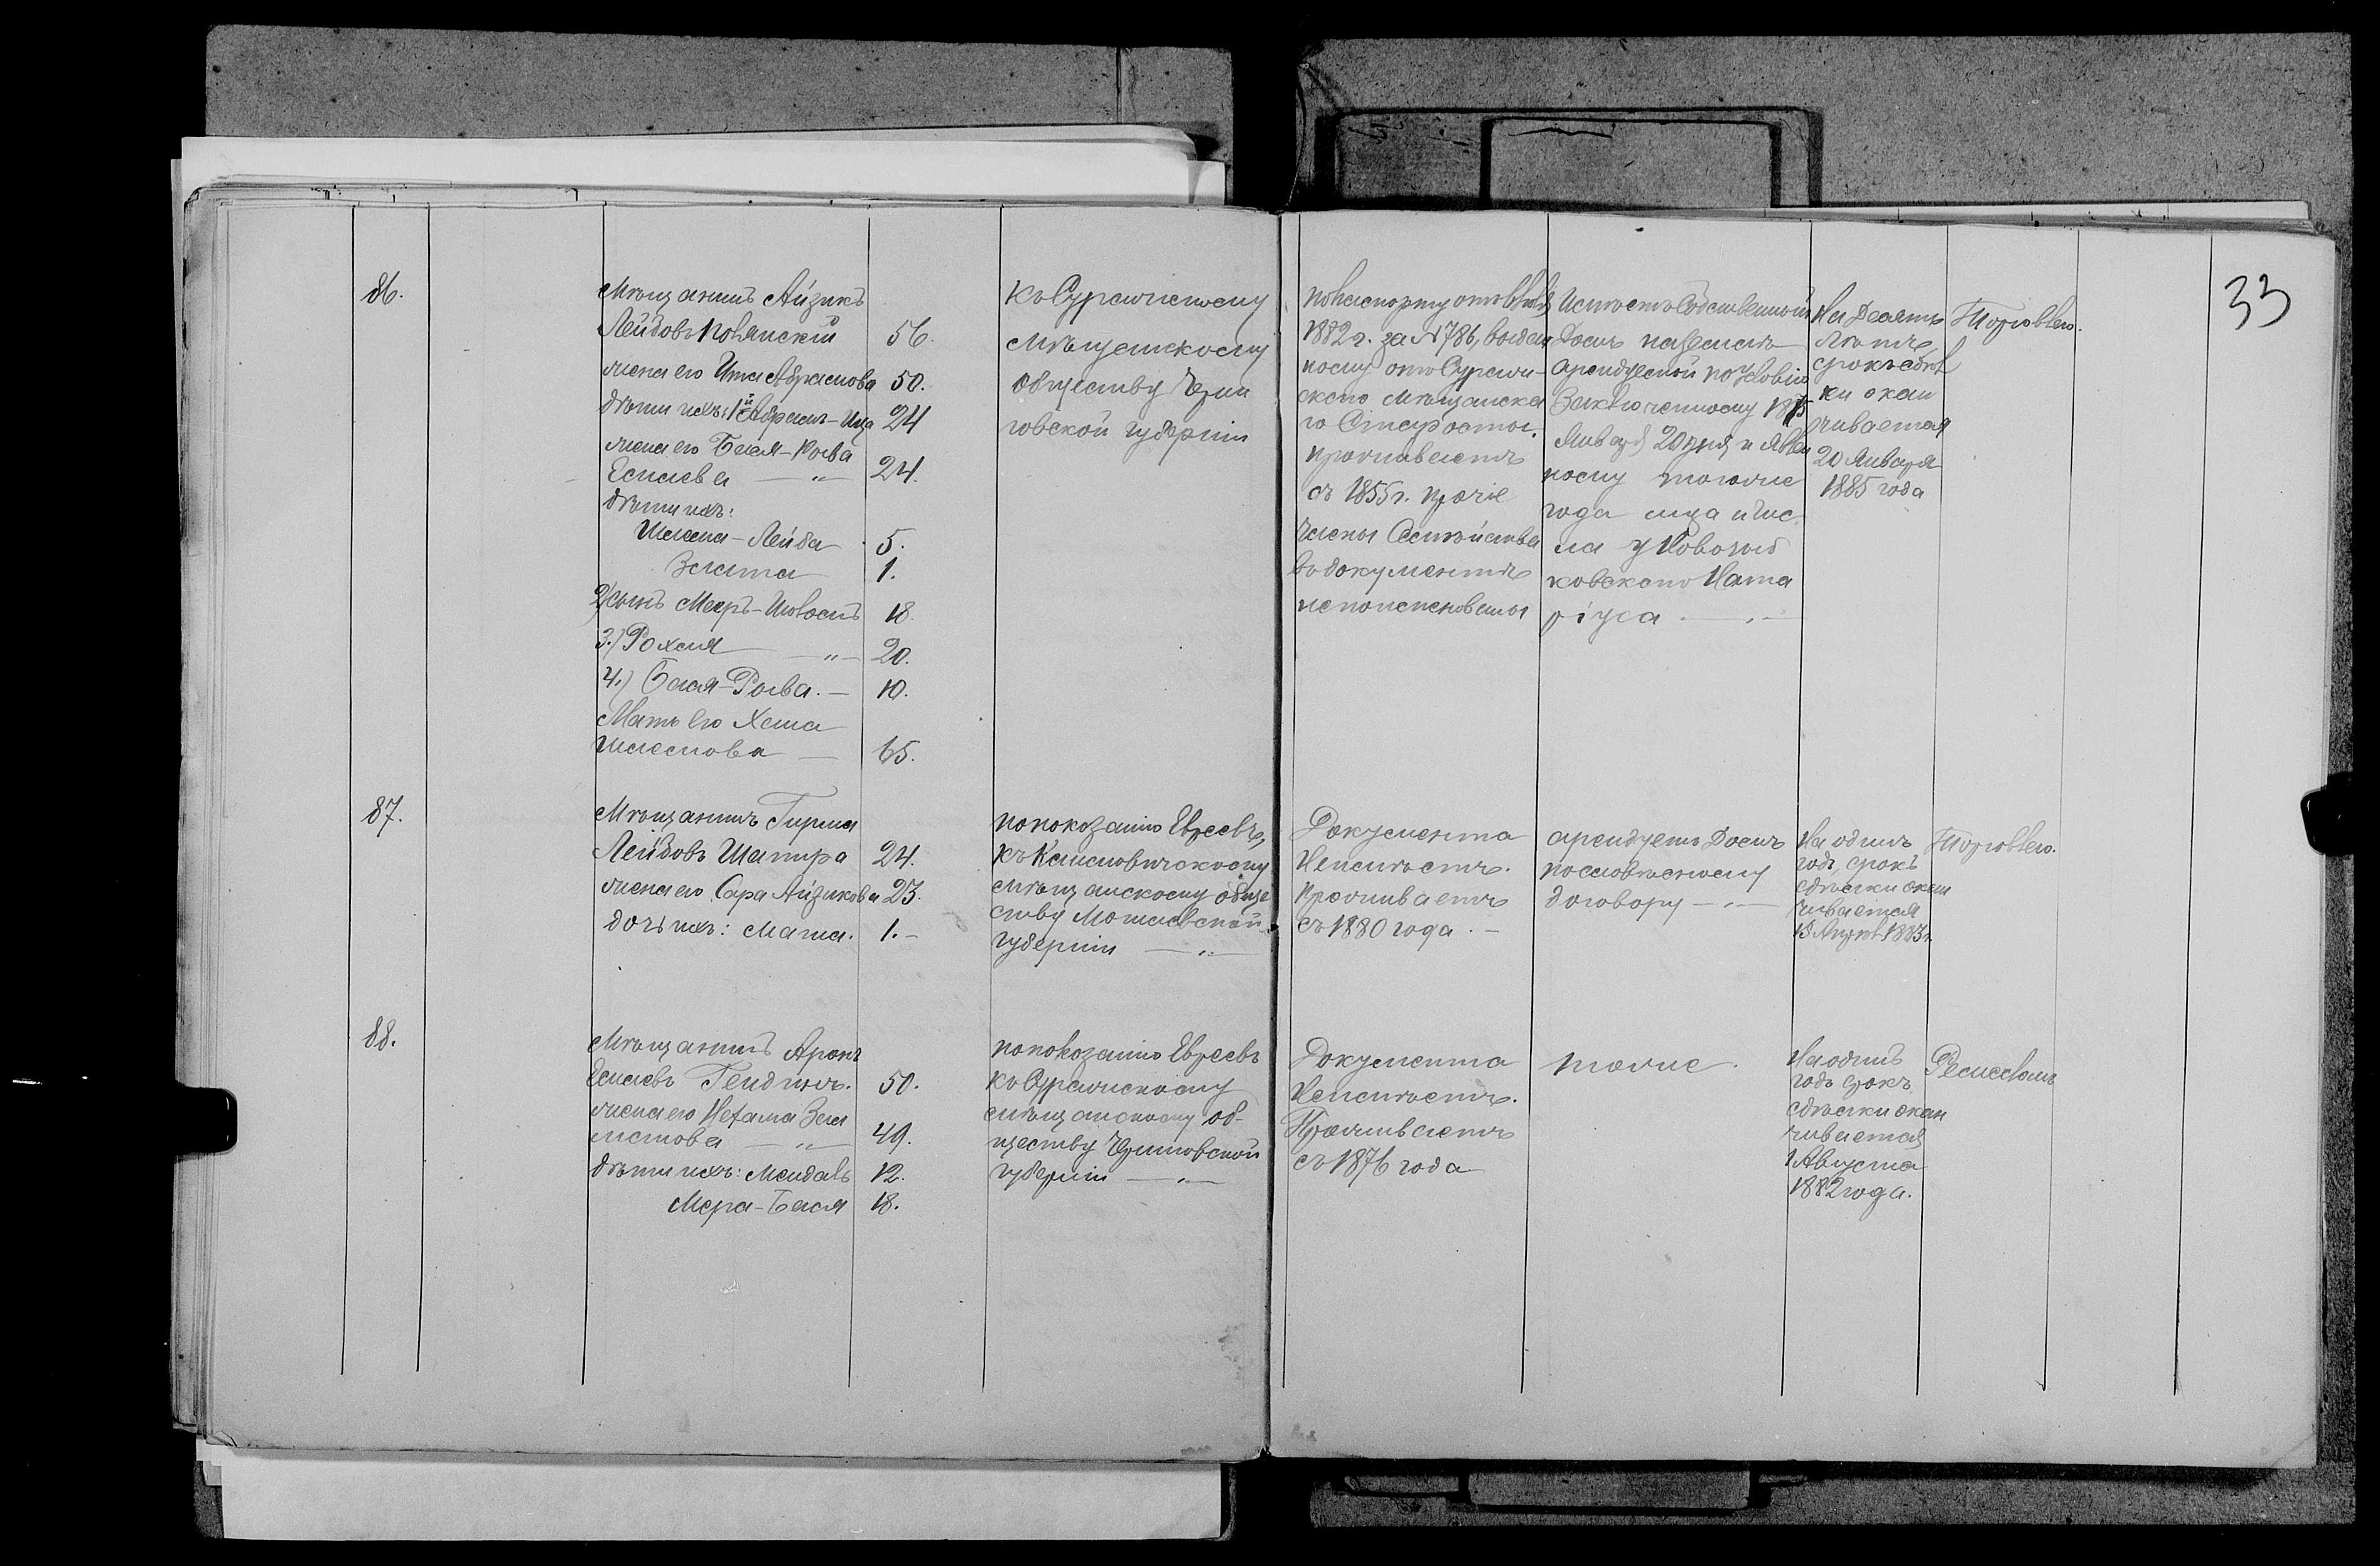 33
86.
Мѣщанинъ Айзикъ
Лейбовъ Новянскій 56.
жена его Ита Абрамова 50.
дѣти ихъ: 1й Абрамъ-Ица 24
жена его Бася-Рыва
Есилева —„— 24.
дѣти ихъ:
Шлема-Лейба 5.
Злата 1.
2) сынъ Меръ- 18.
3.) Рохля —„— 20.
4.) Бася-Рыва. — 10.
Мать его Хаша
Шлемова — 65.
къ Суражскому
мѣщанскому
обществу Черни
говской губерніи
по паспорту отъ
1882 г. за №786, выдан
ному отъ Сураж-
скаго мѣщанска
го Старосты.
проживаетъ
съ 1855 г. прочіе
члены Семейства
въ документѣ
непоименованы
Имѣетъ Собственный
Домъ на землѣ
арендуемой по условію
Заключенному 1875
Января 20 дня и явлен
ному того же
года мца и чис
ла у Новозыб
ковскаго Нота
ріуса —„—
На десять
лѣтъ,
срокъ сдѣл
ки окан
чивается
20 Января
1885 года
Торговлею.
87.
Мѣщанинъ Гирша
Лейбовъ Шапира 24.
жена его Сара Айзикова 23.
дочь ихъ: Маша. 1.—
по показанію Евреевъ,
къ Климовичскому
мѣщанскому обще
ству Могилевской
губерніи —„—
Документа
Неимѣетъ.
проживаетъ
съ 1880 года. —
арендуетъ Домъ
по словѣсному
договору —„—
На одинъ
годъ, срокъ
сдѣлки окан
чивается
13 Апрѣля 1883 г.
Торговлею.
88.
Мѣщанинъ Аронъ
Есилевъ Гендинъ. 50.
жена его Нехама Зел
мانова —„— 49.
дѣти ихъ: Мендаль 12.
Мера-Бася 18.
по показанію Евреевъ
къ Суражскому
мѣщанскому об-
ществу Черниговской
губерніи —„—
Документа
Неимѣетъ.
Проживаетъ
съ 1876 года
тоже.
На одинъ
годъ срокъ
сдѣлки окан
чивается
1 Августа
1882 года.
Ремесломъ